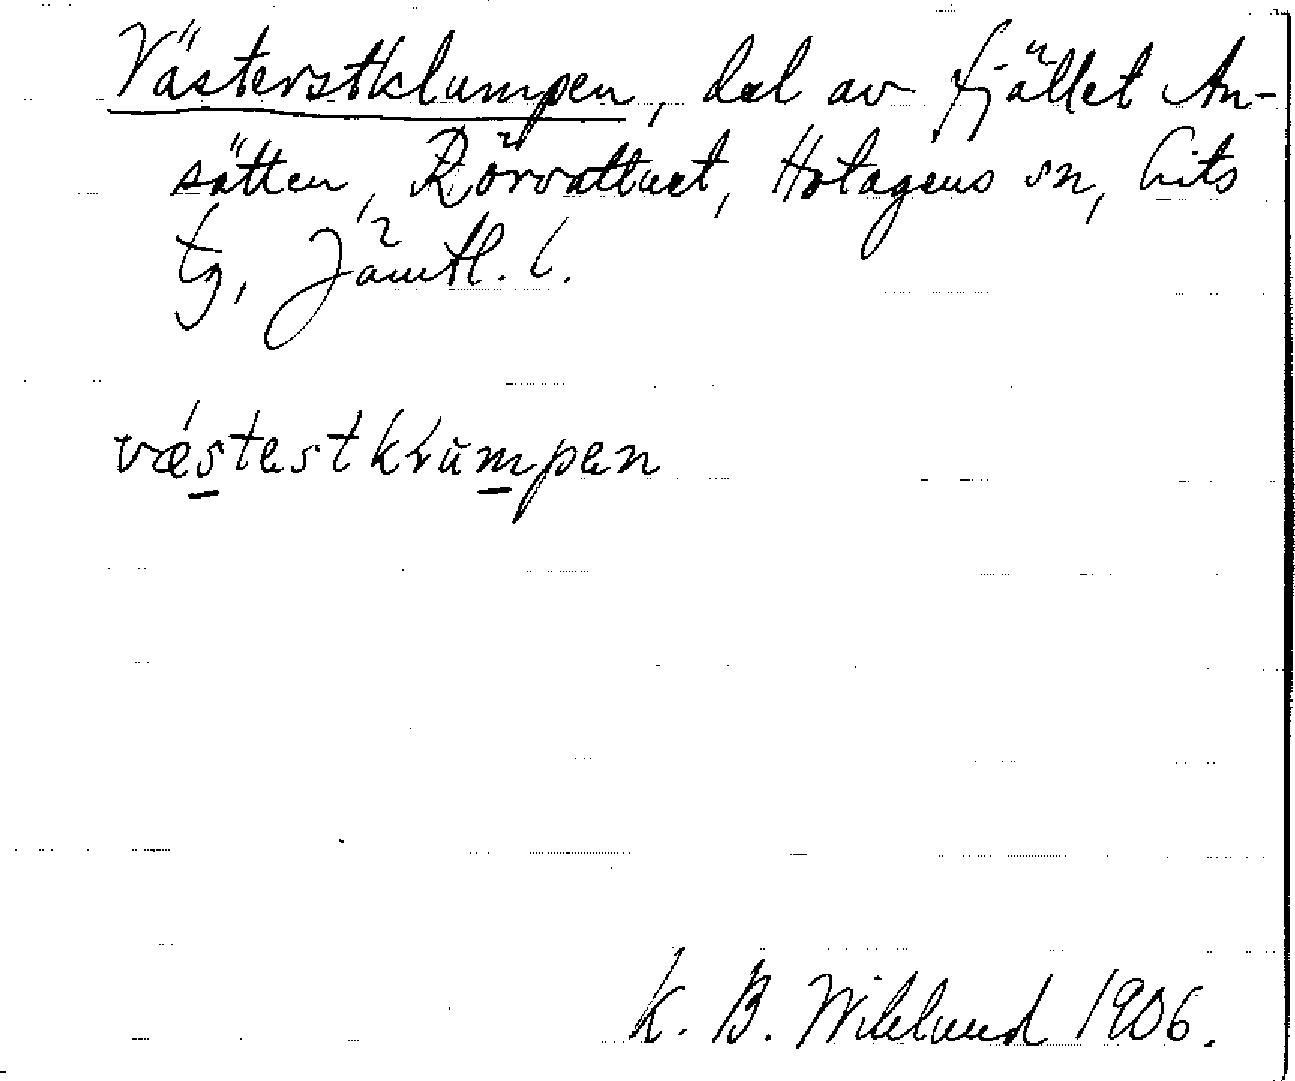 Västerstklumpen, del av fjället An-
sätten, Rörvattnet, Hotagens sn, Lits
tg, Jämtl. l.
vǽstestkrŭmpen
K. B. Wiklund 1906.